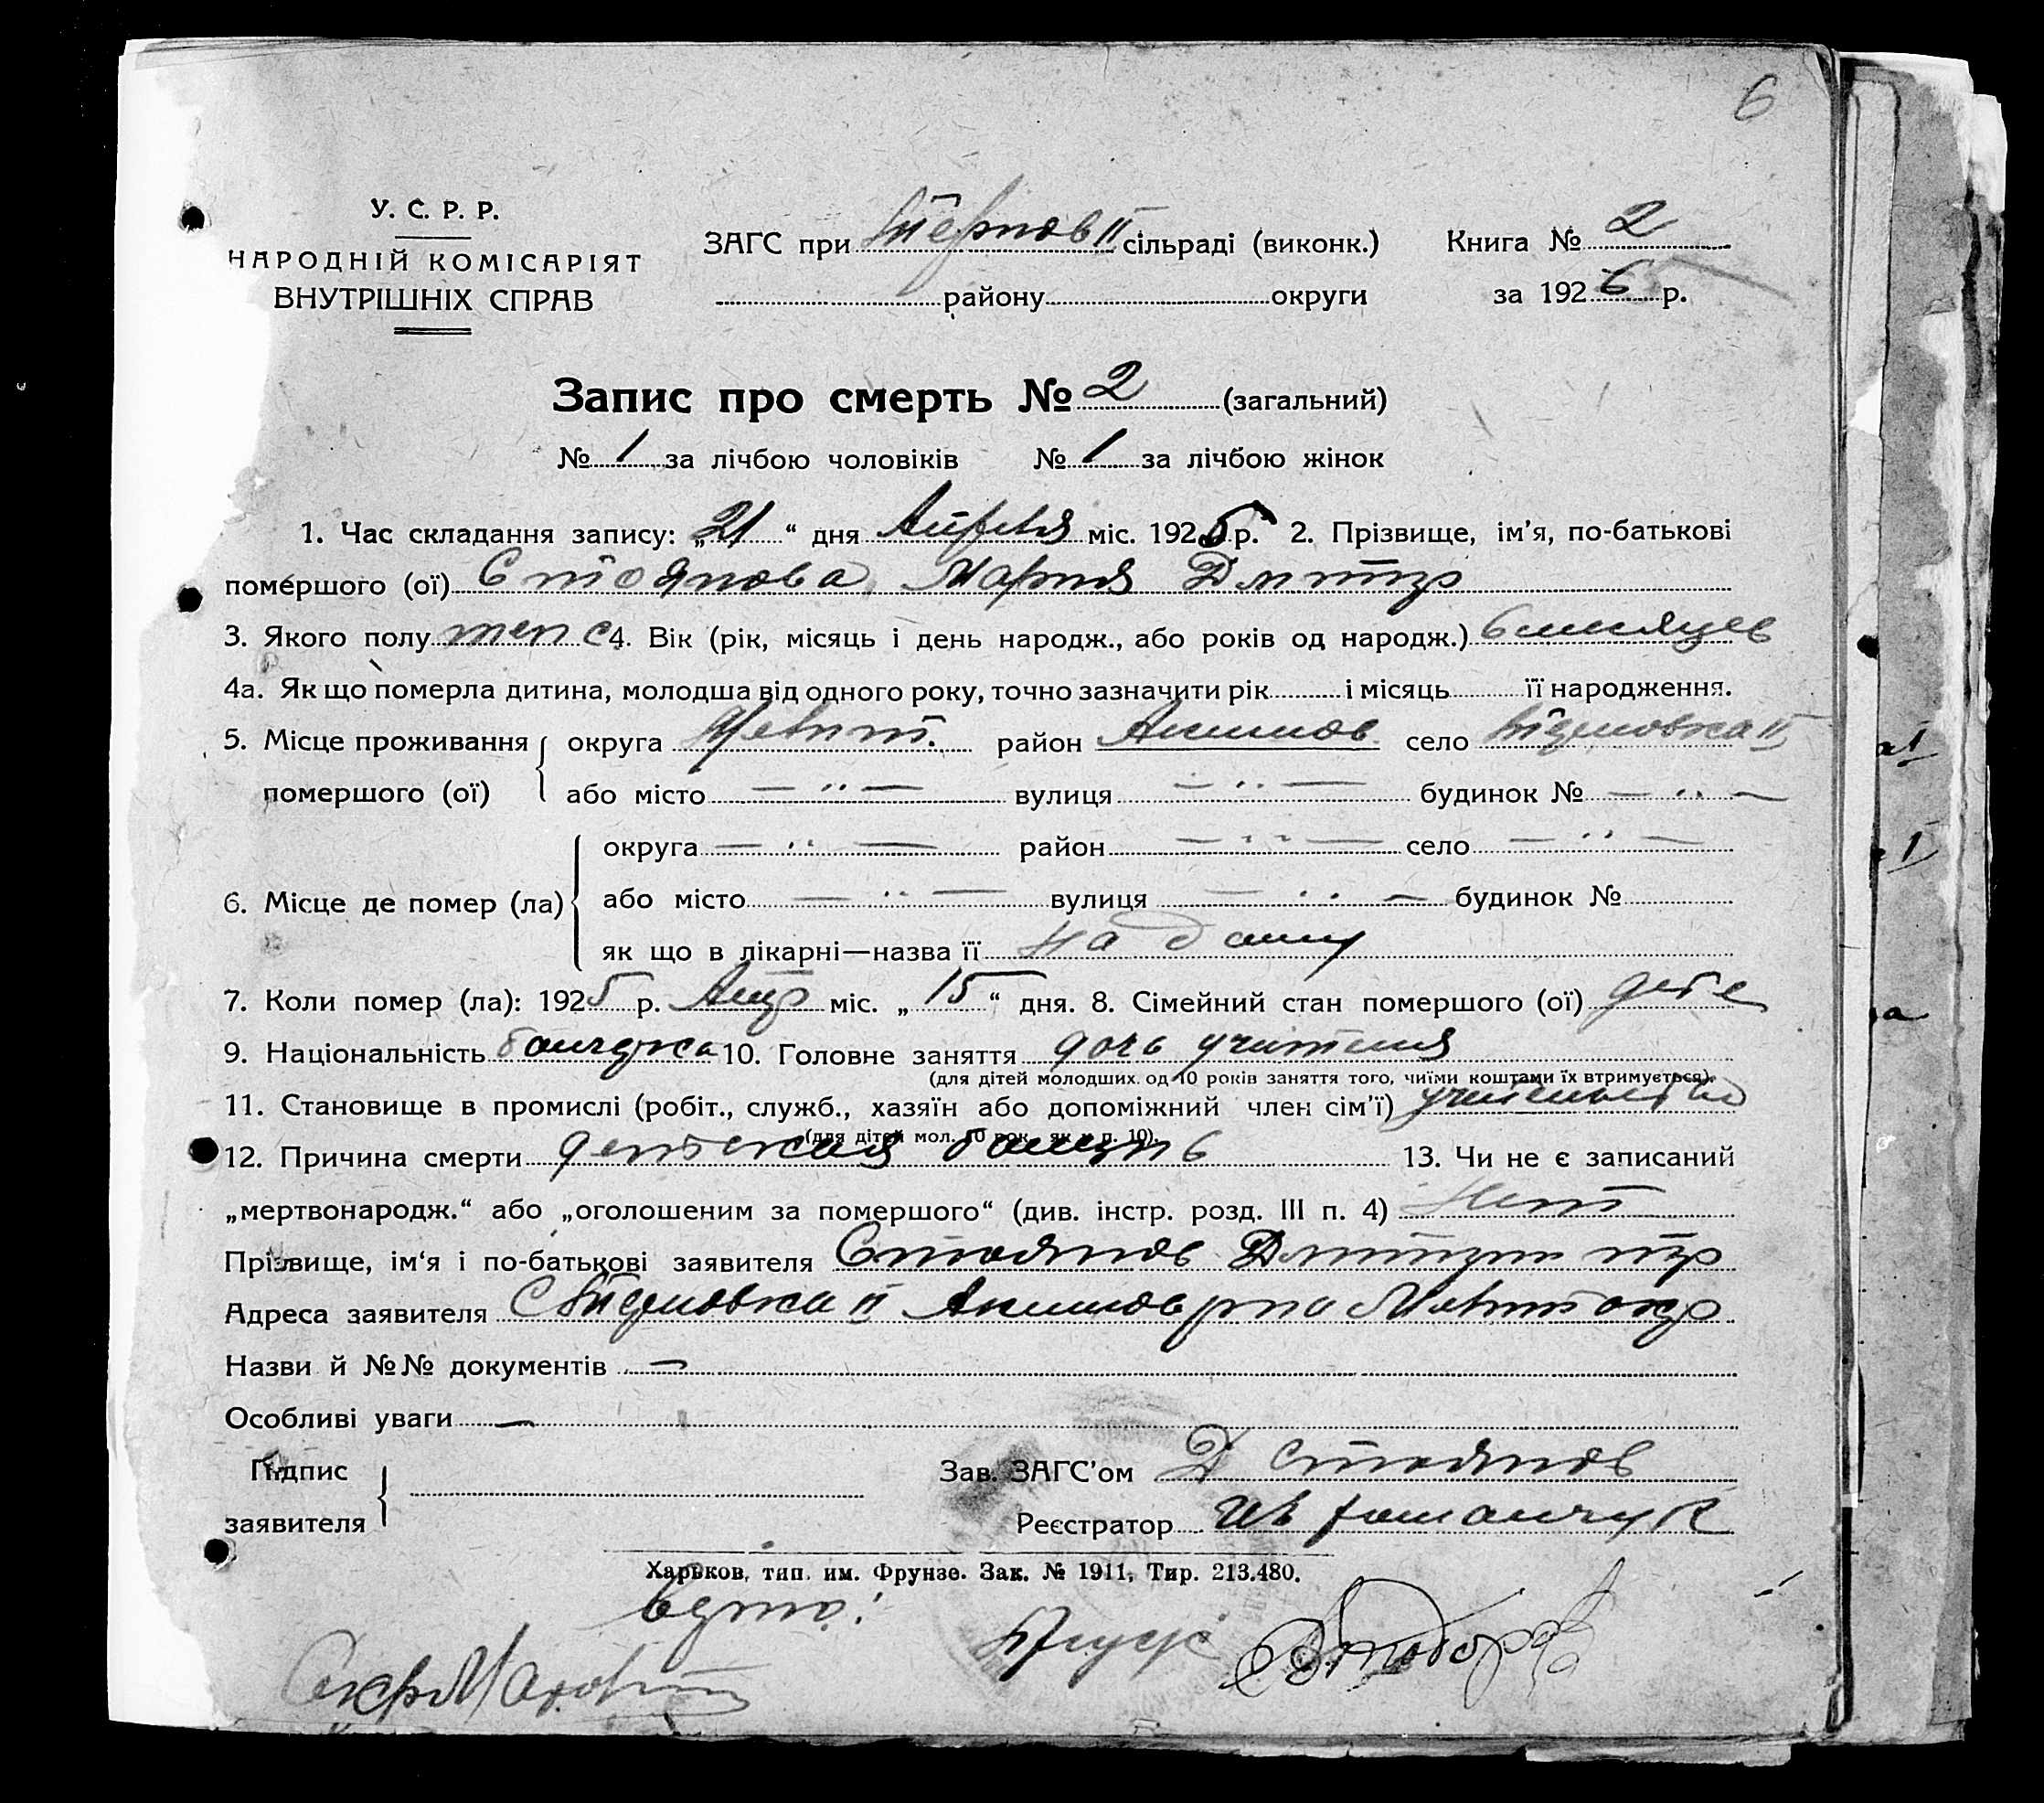 6
У. С. Р. Р.
НАРОДНІЙ КОМІСАРІЯТ
ВНУТРІШНІХ СПРАВ
ЗАГС при II сільраді (виконк.)
району округи
Книга № 2
за 1926 р.
Запис про смерть № 2 (загальний)
№ 1 за лічбою чоловіків № 1 за лічбою жінок
1. Час складання запису: „21“ дня Апреля міс. 1925 р. 2. Прізвище, ім'я, по-батькові
помершого (ої) Стоянова Мария Дмитр
3. Якого полу женс 4. Вік (рік, місяць і день народж., або років од народж.) 6 месяцев
4а. Як що померла дитина, молодша від одного року, точно зазначити рік і місяць її народження.
5. Місце проживання округа Мелит. район Акимов село II
помершого (ої) або місто — „ — вулиця — „ — будинок № — „ —
округа — „ — район — „ — село — „ —
6. Місце де помер (ла) або місто — „ — вулиця — „ — будинок №
як що в лікарні—назва її на дому
7. Коли помер (ла): 1925 р. Апр міс. „15“ дня. 8. Сімейний стан помершого (ої) дете
9. Національність болгарка 10. Головне заняття дочь учителя
(для дітей молодших од 10 років заняття того, чиїми коштами їх втримується).
11. Становище в промислі (робіт., служб., хазяїн або допоміжний член сім'ї) учительство
(для дітей мол. 10 рок. як у п. 10).
12. Причина смерти детская болезнь 13. Чи не є записаний
„мертвонародж.“ або „оголошеним за помершого“ (див. інстр. розд. III п. 4) Нет
Прізвище, ім'я і по-батькові заявителя Стоянов Дмитрий
Адреса заявителя II Акимов рна Мелит окр
Назви й №№ документів —
Особливі уваги —
Підпис
заявителя
Зав. ЗАГС'ом Д Стоянов
Реєстратор Ив
Харьков, тип. им. Фрунзе. Зак. № 1911, Тир. 213.480.
Секр